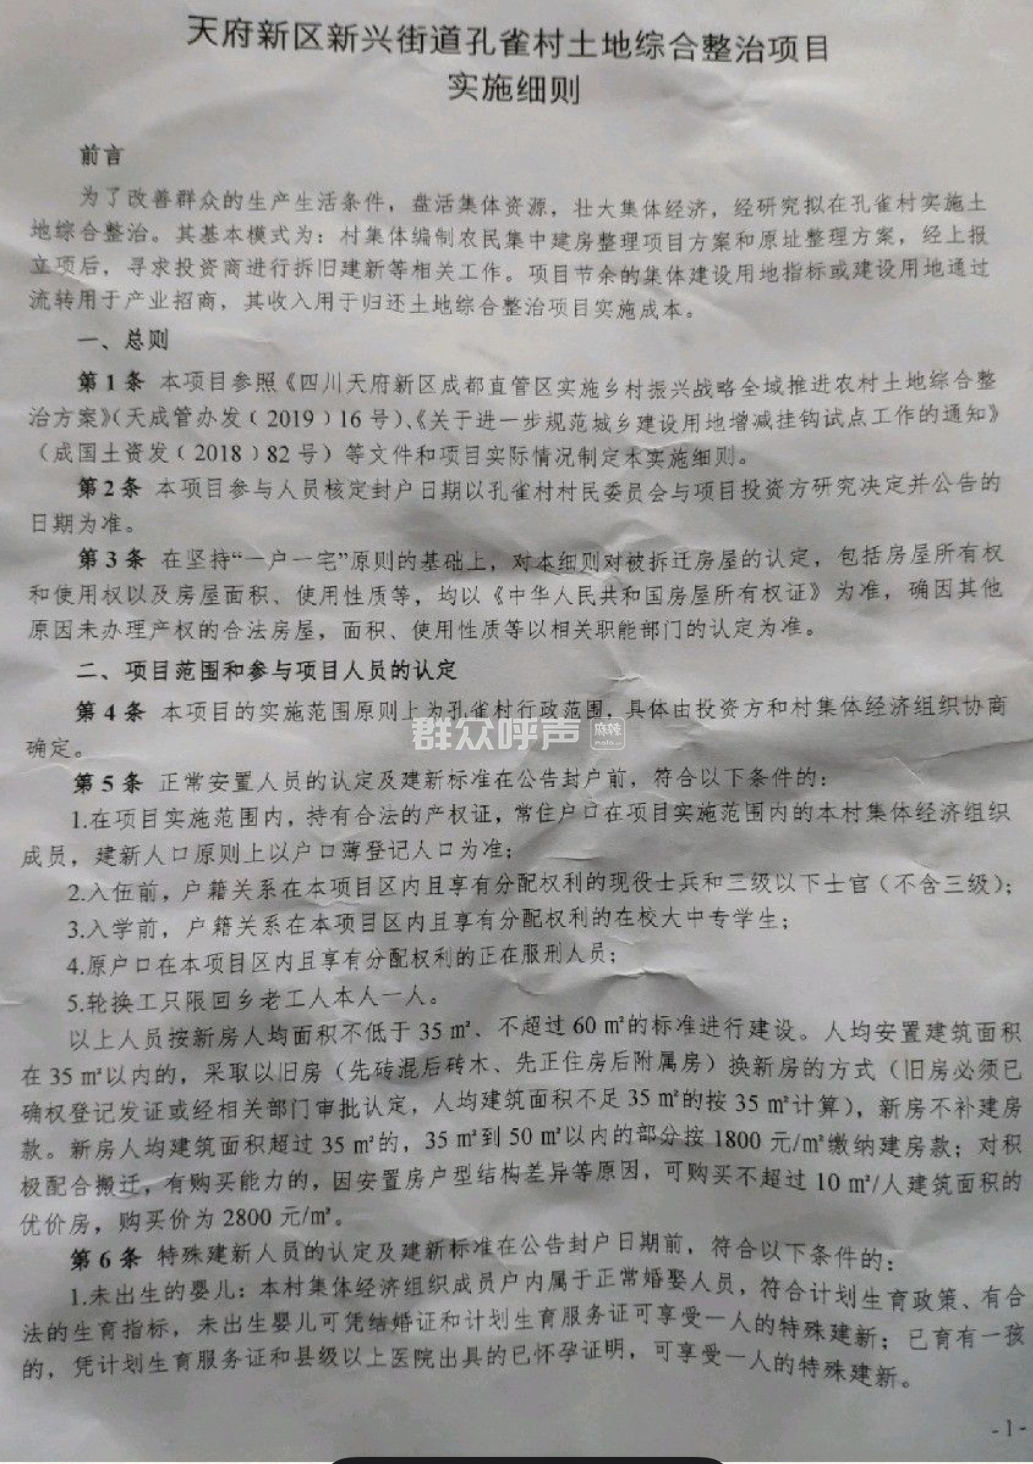 天府新区新兴街道孔雀村土地综合整治项目
实施细则
前言
为了改善群众的生产生活条件，盘活集体资源，壮大集体经济，经研究拟在孔雀村实施土
地综合整治。其基本模式为：村集体编制农民集中建房整理项目方案和原址整理方案，经上报
立项后，寻求投资商进行拆旧建新等相关工作。项目节余的集体建设用地指标或建设用地通过
流转用于产业招商，其收入用于归还土地综合整治项目实施成本。
一、总则
第1条 本项目参照《四川天府新区成都直管区实施乡村振兴战略全域推进农村土地综合整
治方案》（天成管办发﹝2019﹞16号）、《关于进一步规范城乡建设用地增减挂钩试点工作的通知》
（成国土资发﹝2018﹞82号）等文件和项目实际情况制定本实施细则。
第2条 本项目参与人员核定封户日期以孔雀村村民委员会与项目投资方研究决定并公告的
日期为准。
第3条 在坚持“一户一宅”原则的基础上，对本细则对被拆迁房屋的认定，包括房屋所有权
和使用权以及房屋面积、使用性质等，均以《中华人民共和国房屋所有权证》为准，确因其他
原因未办理产权的合法房屋，面积、使用性质等以相关职能部门的认定为准。
二、项目范围和参与项目人员的认定
第4条 本项目的实施范围原则上为孔雀村行政范围，具体由投资方和村集体经济组织协商
确定。
群众呼声 麻辣
第5条 正常安置人员的认定及建新标准在公告封户前，符合以下条件的：
1.在项目实施范围内，持有合法的产权证，常住户口在项目实施范围内的本村集体经济组织
成员，建新人口原则上以户口薄登记人口为准；
2.入伍前，户籍关系在本项目区内且享有分配权利的现役士兵和三级以下士官（不含三级）；
3.入学前，户籍关系在本项目区内且享有分配权利的在校大中专学生；
4.原户口在本项目区内且享有分配权利的正在服刑人员；
5.轮换工只限回乡老工人本人一人。
以上人员按新房人均面积不低于35㎡、不超过60㎡的标准进行建设。人均安置建筑面积
在35㎡以内的，采取以旧房（先砖混后砖木、先正住房后附属房）换新房的方式（旧房必须已
确权登记发证或经相关部门审批认定，人均建筑面积不足35㎡的按35㎡计算），新房不补建房
款。新房人均建筑面积超过35㎡的，35㎡到50㎡以内的部分按1800元/㎡缴纳建房款；对积
极配合搬迁，有购买能力的，因安置房户型结构差异等原因，可购买不超过10㎡/人建筑面积的
优价房，购买价为2800元/㎡。
第6条 特殊建新人员的认定及建新标准在公告封户日期前，符合以下条件的：
1.未出生的婴儿：本村集体经济组织成员户内属于正常婚娶人员，符合计划生育政策、有合
法的生育指标，未出生婴儿可凭结婚证和计划生育服务证可享受一人的特殊建新；已育有一孩
的，凭计划生育服务证和县级以上医院出具的已怀孕证明，可享受一人的特殊建新。
-1-